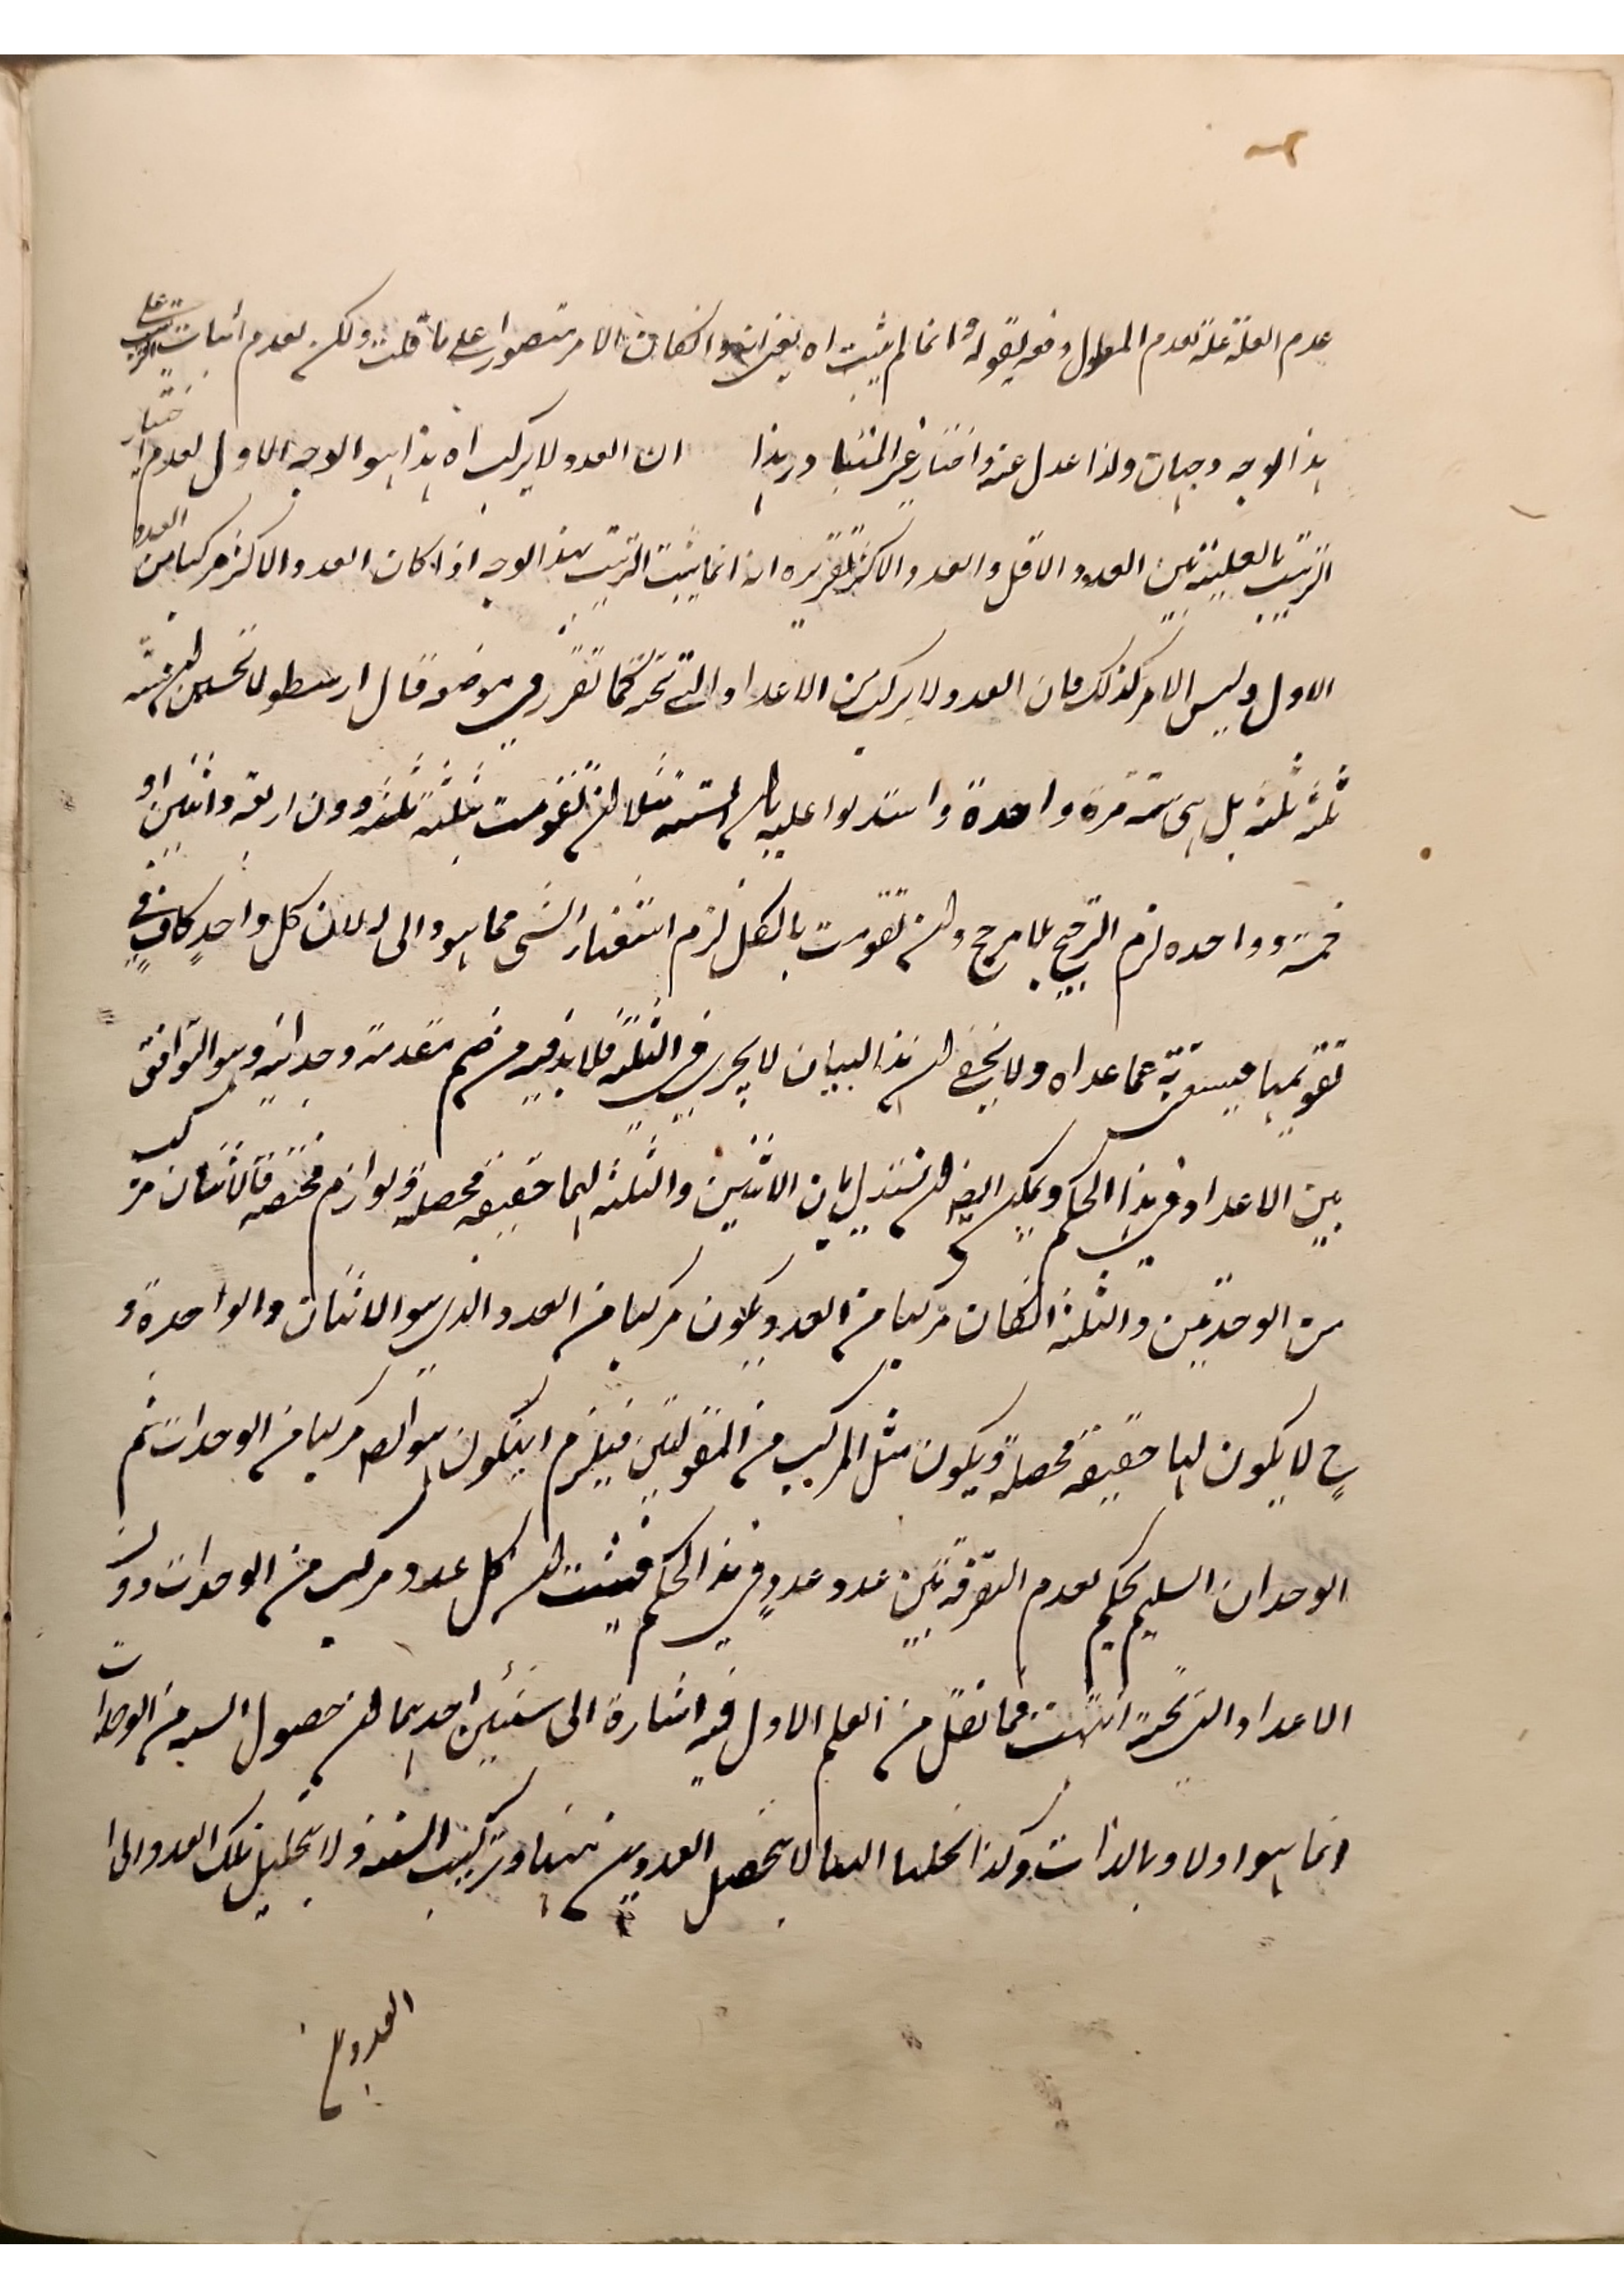 عدم العلة علة لعدم المعلول دفعه بقوله وانما لم يثبت اه يعنى انه وان كان الامر متصورا على ما قلت ولكن لعدم اثبات الترتيب على
هذا الوجه وجهان ولذا عدل عنه واختار غير المتنا ورهذا ان العدد لا يركب اه هذا هو الوجه الاول لعدم اختيار
الترتيب بالعلية بين العدد الاقل والعدد الاكثر تقريره انه انما يثبت الترتيب بهذا الوجه اذا كان العدد الاكثر مركبا من العدد
الاول وليس الامر كذلك فان العدد لا يركب من الاعداد التى تحته كما تقرر فى موضعه قال ارسطو لا تحسبن ان ستة
ثلثة ثلثة بل هى ستة مرة واحدة واستدلوا عليه بان الستة مثلا ان تقومت بثلثة ثلثة دون اربعة واثنين او
خمسة وواحدة لزم الترجيح بلا مرجح وان تقومت بالكل لزم استغناء الشى عما هو ذاتى له لان كل واحدٍ كافٍ فى
تقويمها فيستغنى به عما عداه ولا يخفى ان هذا البيان لا يجرى فى الثلثة فلا بد فيه من ضم مقدمة وجدانية وهو التوافق
بين الاعداد فى هذا الحكم ويمكن ايضا ان نستدل بان الاثنين والثلثة لهما حقيقة محصلة ولوازم مختصة فالاثنان مركب
من الوحدتين والثلثة ان كان مركبا من العدد يكون مركبا من العدد الذى هو الاثنان والواحدة و
ح لا يكون لها حقيقة محصلة ويكون مثل المركب من المقولتين فيلزم ان يكون هو ايضا مركبا من الوحدات ثم
الوجدان السليم يحكم بعدم التفرقة بين عدد عددٍ فى هذا الحكم فيثبت ان كل عدد مركب من الوحدات دون
الاعداد التى تحته انتهت فما نقل من المعلم الاول فيه اشارة الى شيئين احدهما ان حصول الستة من الوحدات
انما هو اولا وبالذات وكذا تحليلها اليها لا بتحصل العددين منها وتركيب الستة ولا بتحليل تلك العدد الى
العددين